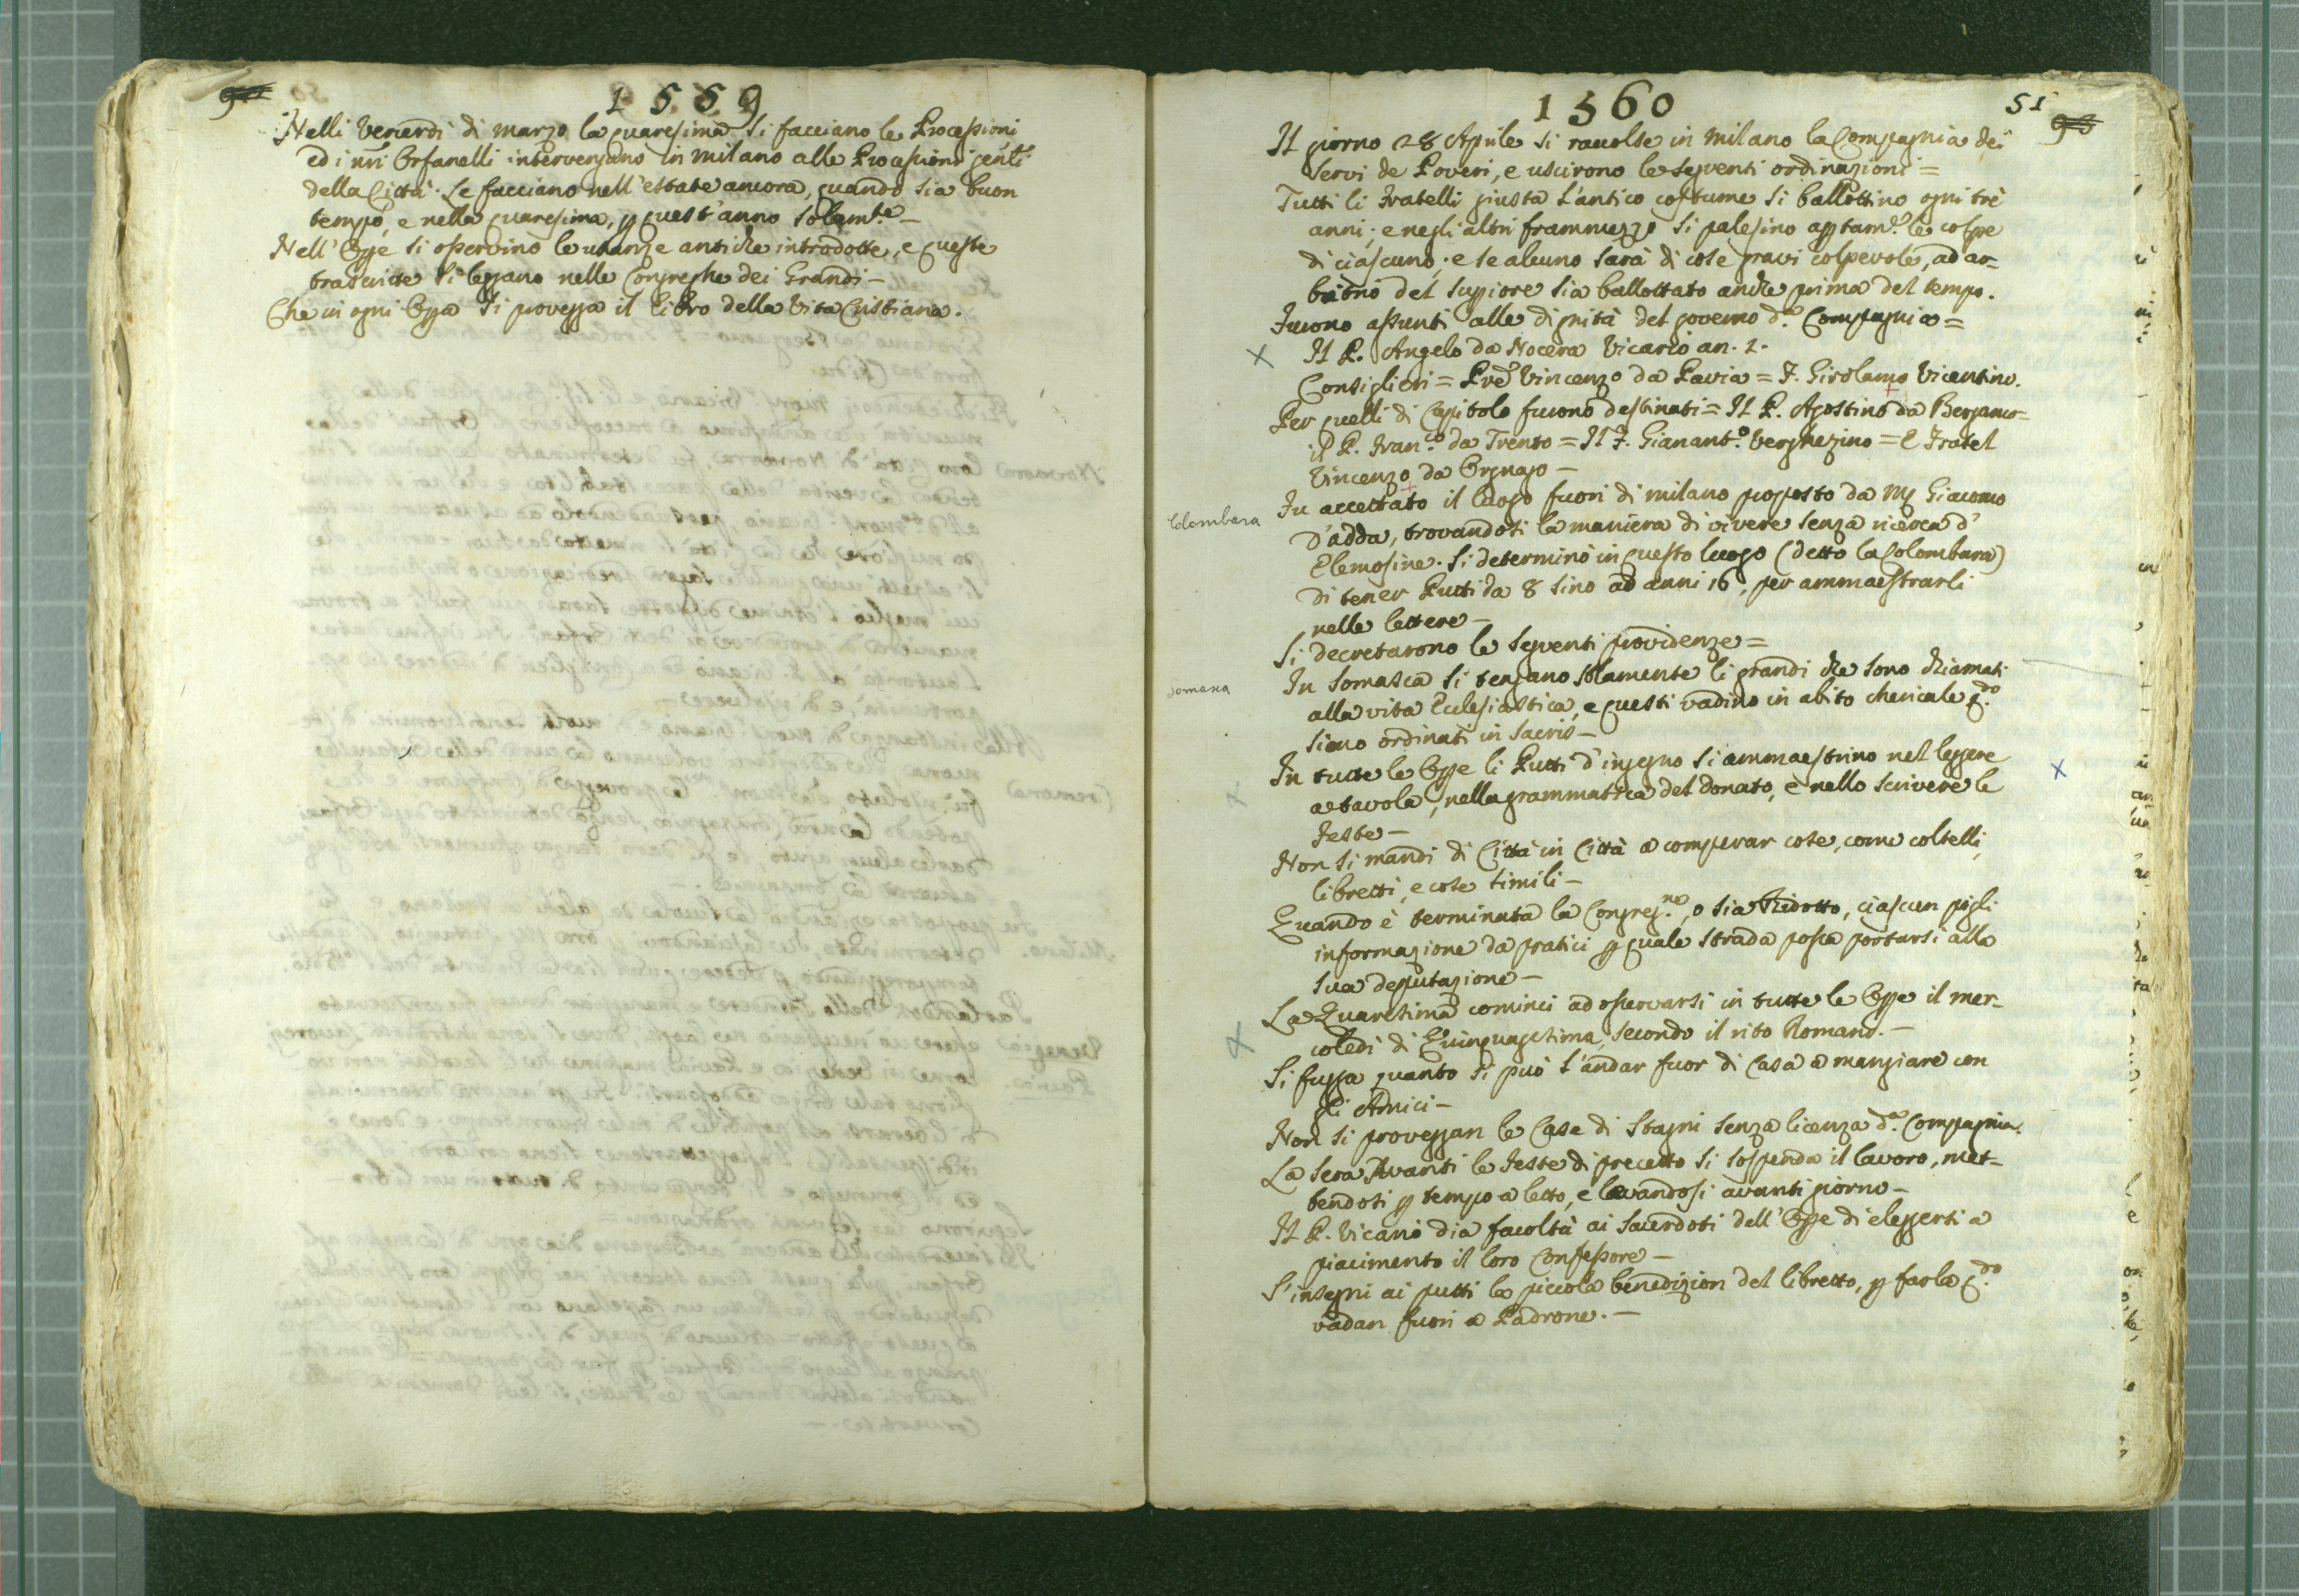 1559
Nelli Venerdi di marzo la quaresima si facciano le Processioni
ed i nri Orfanelli intervengano in Milano alle Processioni gentli
della Città. Le facciano nell'estate ancora, quando sia buon
tempo, e nella quaresima, p quest'anno solamte. –
Nell'Opje si osservino le usanze antiche introdotte, e queste
trascritte si leggano nelle Congreghe dei Grandi –
Che in ogni Opa si provegga il libro della Vita Cristiana.
1560
51
Il giorno 28 Aprile si raccolse in Milano la Compagnia dei
Servi de Poveri, e uscirono le seguenti ordinazioni =
Tutti li Fratelli giusta l'antico costume si ballottino ogni trè
anni; e negli altri frammezzo si palesino apptame. le colpe
di ciascuno; e se alcuno sarà di cose gravi colpevole, ad ar-
bitrio del Suppiore sia ballottato anche prima del tempo.
Furono assunti alle dignità del governo da. Compagnia =
X
Il P. Angelo da Nocera Vicario an. 2.
Consiglieri = Pre Vincenzo da Pavia = F. Girolamo Vicentino.
Per quelli di Capitolo furono destinati = Il P. Agostino da Bergamo =
il P. Franco. da Trento = Il F. Giananto. Verghezino = E Fratel
Vincenzo da Orgnago –
Colombara
Fu accettato il luogo fuori di Milano proposto da Mr Giacomo
D'adda, trovandosi la maniera di vivere senza ricerca d'
Elemosine. Si determinò in questo luogo (detto la Colombara)
di tener Putti da 8 sino ad anni 16, per ammaestrarli
nelle lettere –
Si decretarono le seguenti providenze =
Somasca
In Somasca si tengano solamente li grandi che sono chiamati
alla vita Eclesiastica, e questi vadino in abito chericale qdo.
siano ordinati in Sacris –
X
In tutte le Opje li Putti d'ingegno si ammaestrino nel leggere
X
a tavola, nella grammatica del Donato, e nello scrivere le
Feste –
Non si mandi di Città in Città a comperar cose, come coltelli,
libretti, e cose simili –
Quando è terminata la Congregne., o sia Ridotto, ciascun pigli
informazione da pratici p quale strada possa portarsi alla
sua deputazione –
X
La Quaresima cominci ad osservarsi in tutte le Opje il mer-
coledi di Quinquagesima, secondo il rito Romano. –
Si fugga quanto si può l'andar fuor di Casa a mangiare con
gli Amici –
Non si proveggan le Case di Stagni senza licenza da. Compagnia.
La sera Avanti le Feste di precetto si sospenda il lavoro, met-
tendosi p tempo a letto, e levandosi avanti giorno –
Il P. Vicario dia facoltà ai Sacerdoti dell'Opje di eleggersi a
piacimento il loro Confessore –
S'insegni ai putti la piccola benedizion del libretto, p farla qdo.
vadan fuori a Padrone. –